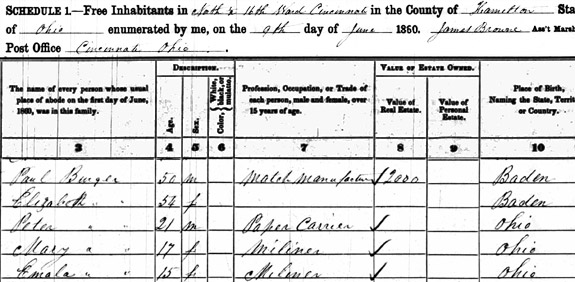 SCHEDULE 1.—Free Inhabitants in 16th Ward Cincinnati in the County of Hamilton Sta
of Ohio enumerated by me, on the 9th day of June 1860. James Browne Ass't Marsh
Post Office Cincinnati Ohio.
The name of every person whose usual place of abode on the first day of June, 1860, was in this family.
DESCRIPTION.
Age.
Sex.
Color, White, black, or mulatto.
Profession, Occupation, or Trade of each person, male and female, over 15 years of age.
VALUE OF ESTATE OWNED.
Value of Real Estate.
Value of Personal Estate.
Place of Birth, Naming the State, Territ or Country.
3 4 5 6 7 8 9 10
Paul Burger 50 m Match manufacturer 2000 Baden
Elizabeth " " 54 f Baden
Peter " " 21 m Paper Carrier / Ohio
Mary " " 17 f Miliner / Ohio
Emala " " 15 f Miliner / Ohio